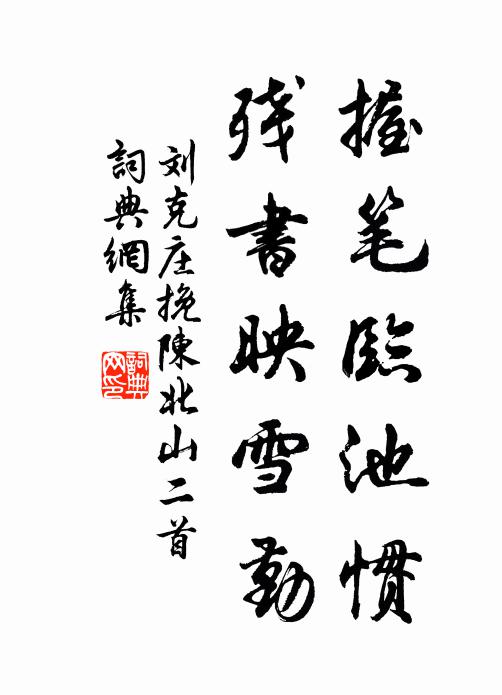 握笔臨池慣
残書映雪勤
刘克庄挽陳北山二首
詞典網集
詞典網印